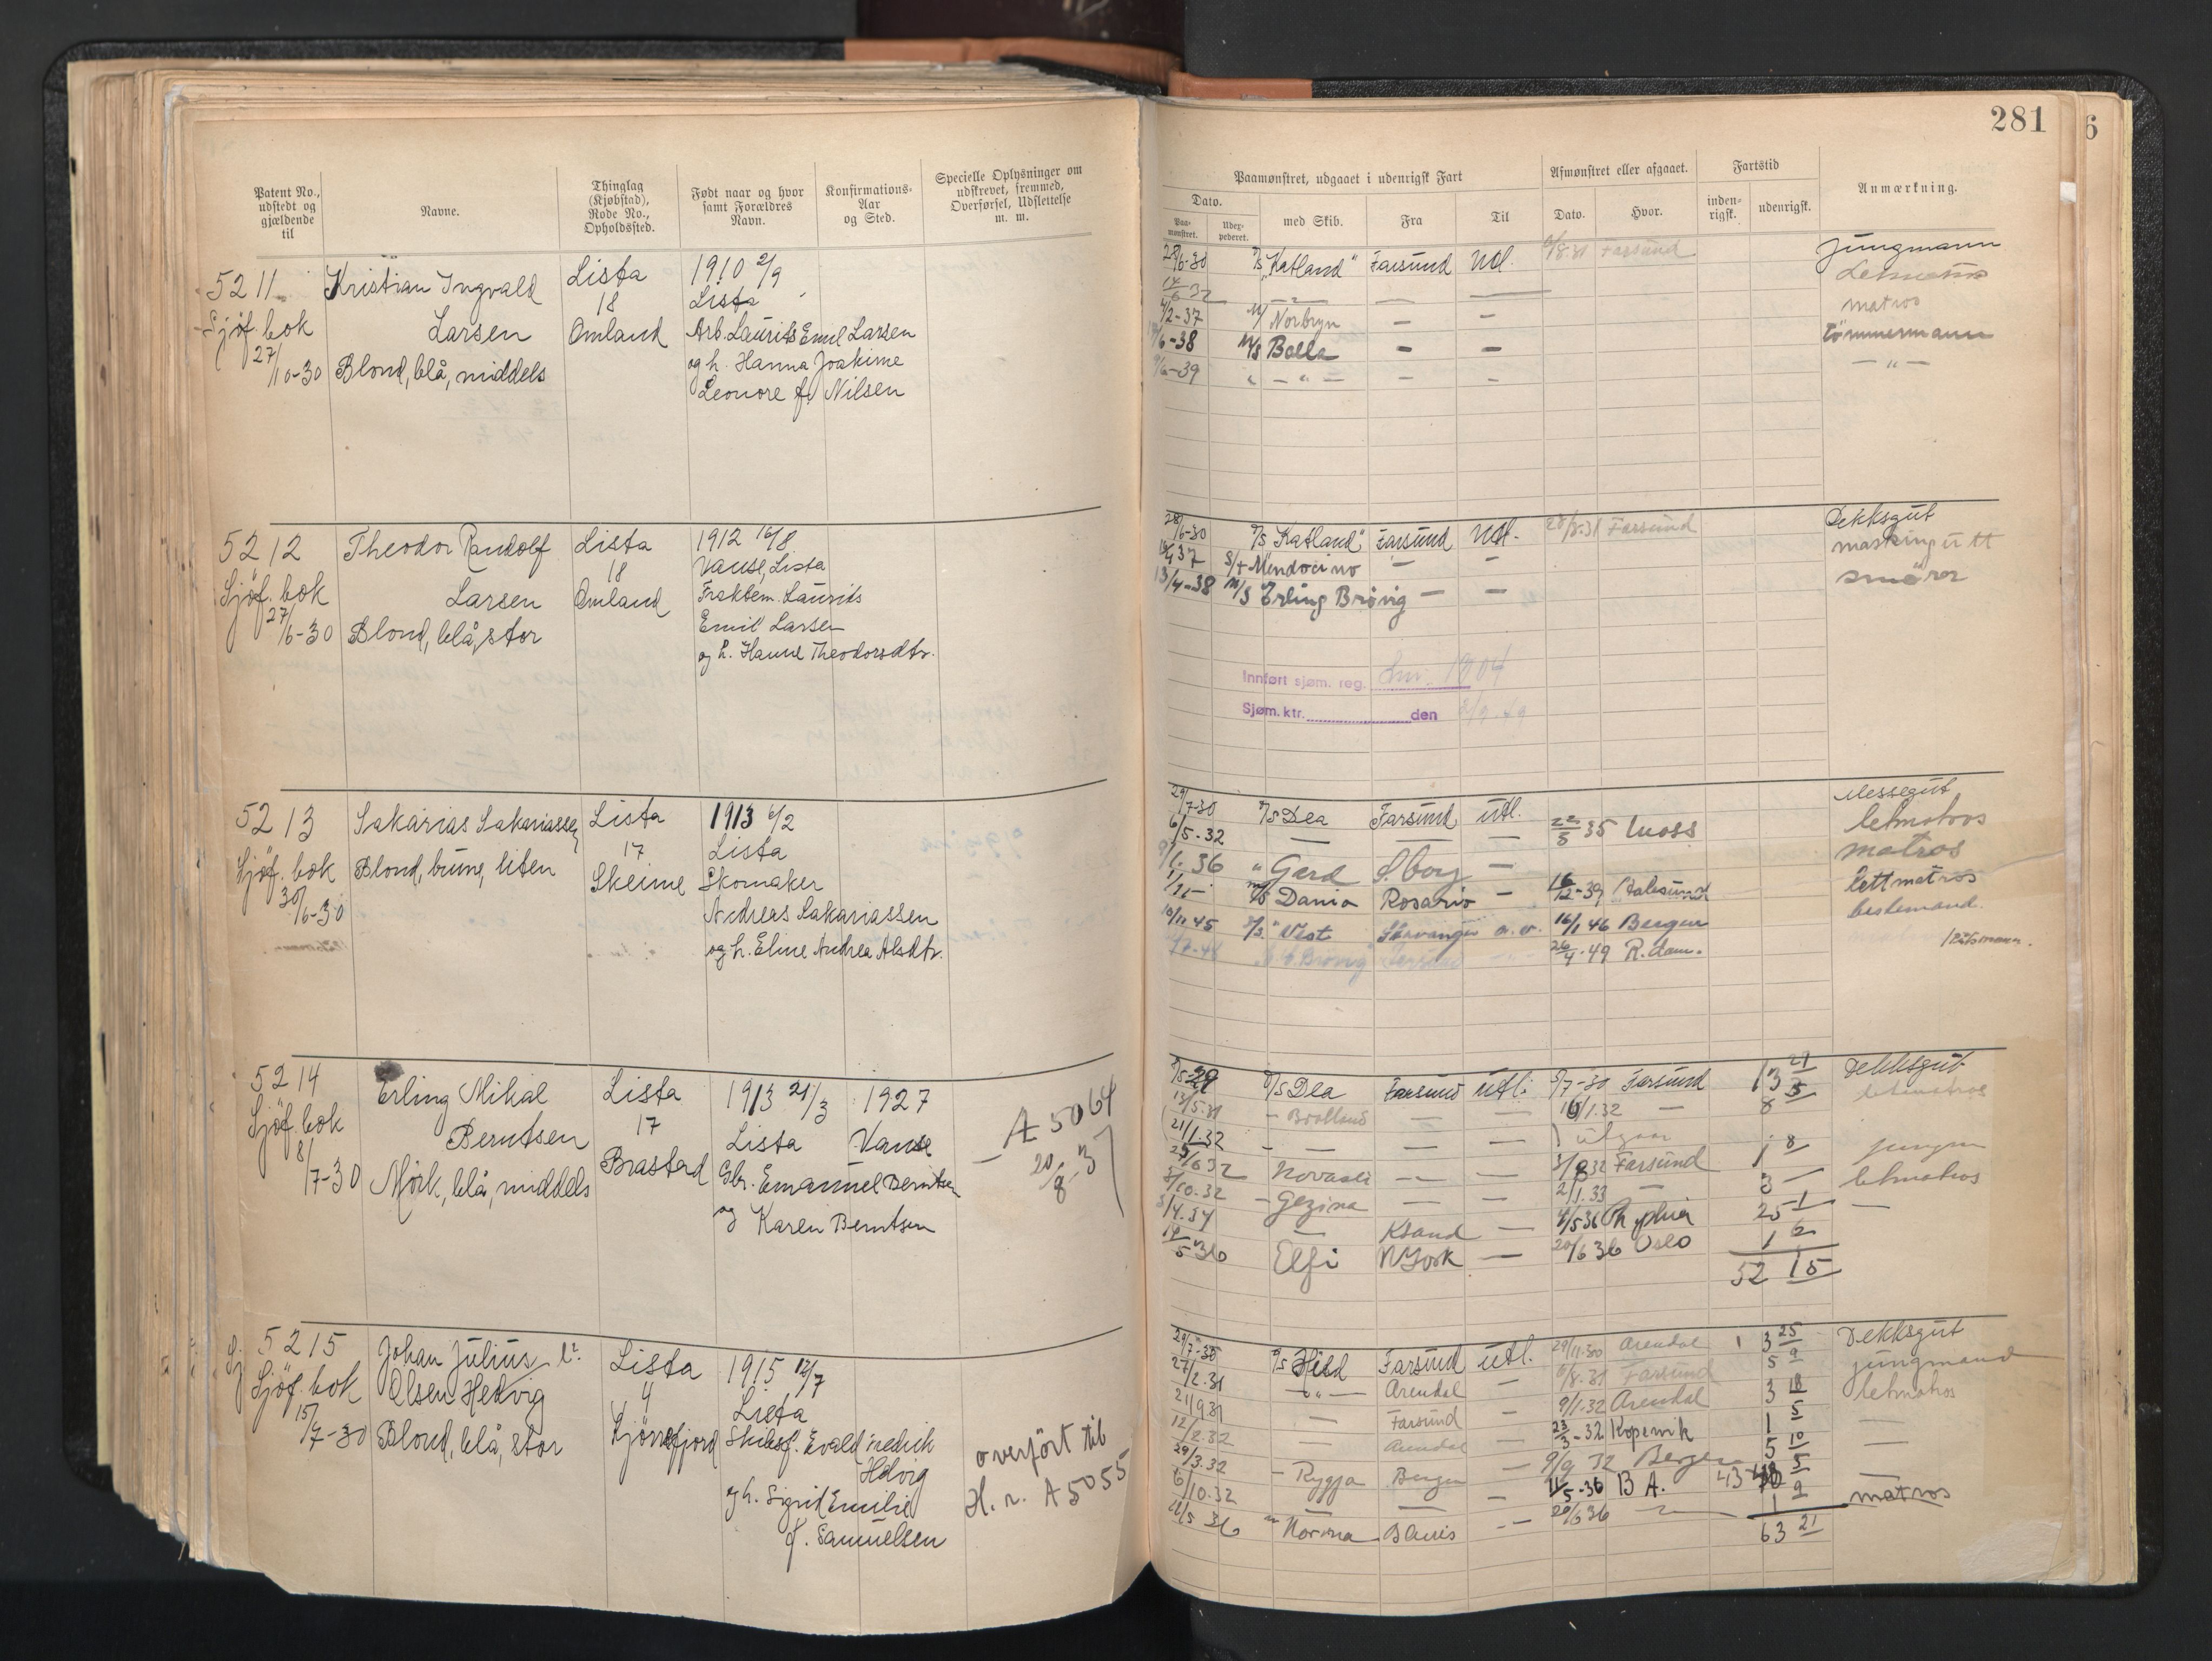 281
6
Patent No., udstedt og gjældende til
Navne.
Thinglag (Kjøbstad), Rode No., Opholdssted.
Født naar og hvor samt Forældres Navn.
Konfirmations-Aar og Sted.
Specielle Oplysninger om udskrevet, fremmed, Overførsel, Udslettelse m. m.
Paamønstret, udgaaet i udenrigsk Fart
Afmønstret eller afgaaet.
Fartstid
Anmærkning.
Dato.
Paa-mønstret.
Udex-pederet.
med Skib.
Fra
Til
Dato.
Hvor.
inden-rigsk.
udenrigsk.
5211
Sjøf. bok
27/10-30
Kristian Ingvald
Larsen
Blond, blå, middels
Lista
18
Omland
1910 2/9
Lista
Arb. Laurits Emil Larsen
og h. Hanna Joakime
Leonore f. Nilsen
28/6-30 "Katland" Farsund Utl. Farsund Jungmann
matros
1/2-37 M/ Norbryn — —
6-38 M/S Bolla — — tømmermann
6-39 — " — — — — " —
5212
Sjøf. bok
27/6-30
Theodor Randolf
Larsen
Blond, blå, stor
Lista
18
Omland
1912 16/8
Vanse, Lista
Fraktem. Laurits
Emil Larsen
og h. Hanne Theodorsdtr.
28/6-30 "Katland" Farsund Utl. Farsund Dekksgut
37 S/T Mendocino — — maskingutt
13/4-38 M/S Erling Brøvig — — smører
Innført sjøm. reg.
Sjøm. ktr. den
5213
Sjøf. bok
30/6-30
Sakarias Sakariassen
Blond, brune, liten
Lista
17
Skeime
1913 6/2
Lista
Skomaker
Andreas Sakariassen
og h. Eline Andrea Alsdtr.
29/7-30 Dea Farsund utl. Messegut
6/5-32 — — 22/5 35 Moss letmatros
36 " Gerd S.borg — matros
Dania Rosario — 16/12-39 Aalesund lettmatros
10/11 45 Vest Stavanger 16/1 46 Bergen bestemand.
26/4-49 R.dam. båtsmann.
5214
Sjøf. bok
8/7-30
Erling Mikal
Berntsen
Mørk, blå, middels
Lista
17
Brastad
1913 21/3
Lista
Gbr. Emanuel Berntsen
og Karen Berntsen
1927
Vanse
A 5064
20/8-37
29 Dea Farsund utl. 5/7-30 Farsund 13 Dekksgut
— 16/1.32 — 8 letmatros
21/1.32 — — —
25/6 32 — — 32 Farsund 1 8 jungm
3/10.32 — Gezina — — 2/1.33 — 3 — letmatros
Ksand — 4/5 36 25 1 —
19/5 36 Elfi N York — 20/6 36 Oslo 1 6
52 15
5215
Sjøf. bok
15/7-30
Johan Julius
Olsen Hedvig
Blond, blå, stor
Lista
4
1915 12/7
Lista
Skibsf. Evald Fredrik
Hedvig
og h. Sigrid Emilie
f. Samuelsen
overført til
H. r. A 5055
29/7-30 Hild Farsund utl. 29/11.30 Arendal 3 25 Dekksgut
27/2.31 — " — Arendal — 6/8.31 Farsund 5 9 jungmand
21/9 31 — Farsund 9/1.32 Arendal 3 18 letmatros
12/2.32 — Arendal 23/3-32 Kopervik 1 5 —
29/3.32 — Rygja Bergen 9/9 32 Bergen 5 10 —
6/10.32 — — 11/5-36 B A. 43 5 —
18/5 36 Norma B Aires — 20/6 36 1 9 matros
63 21